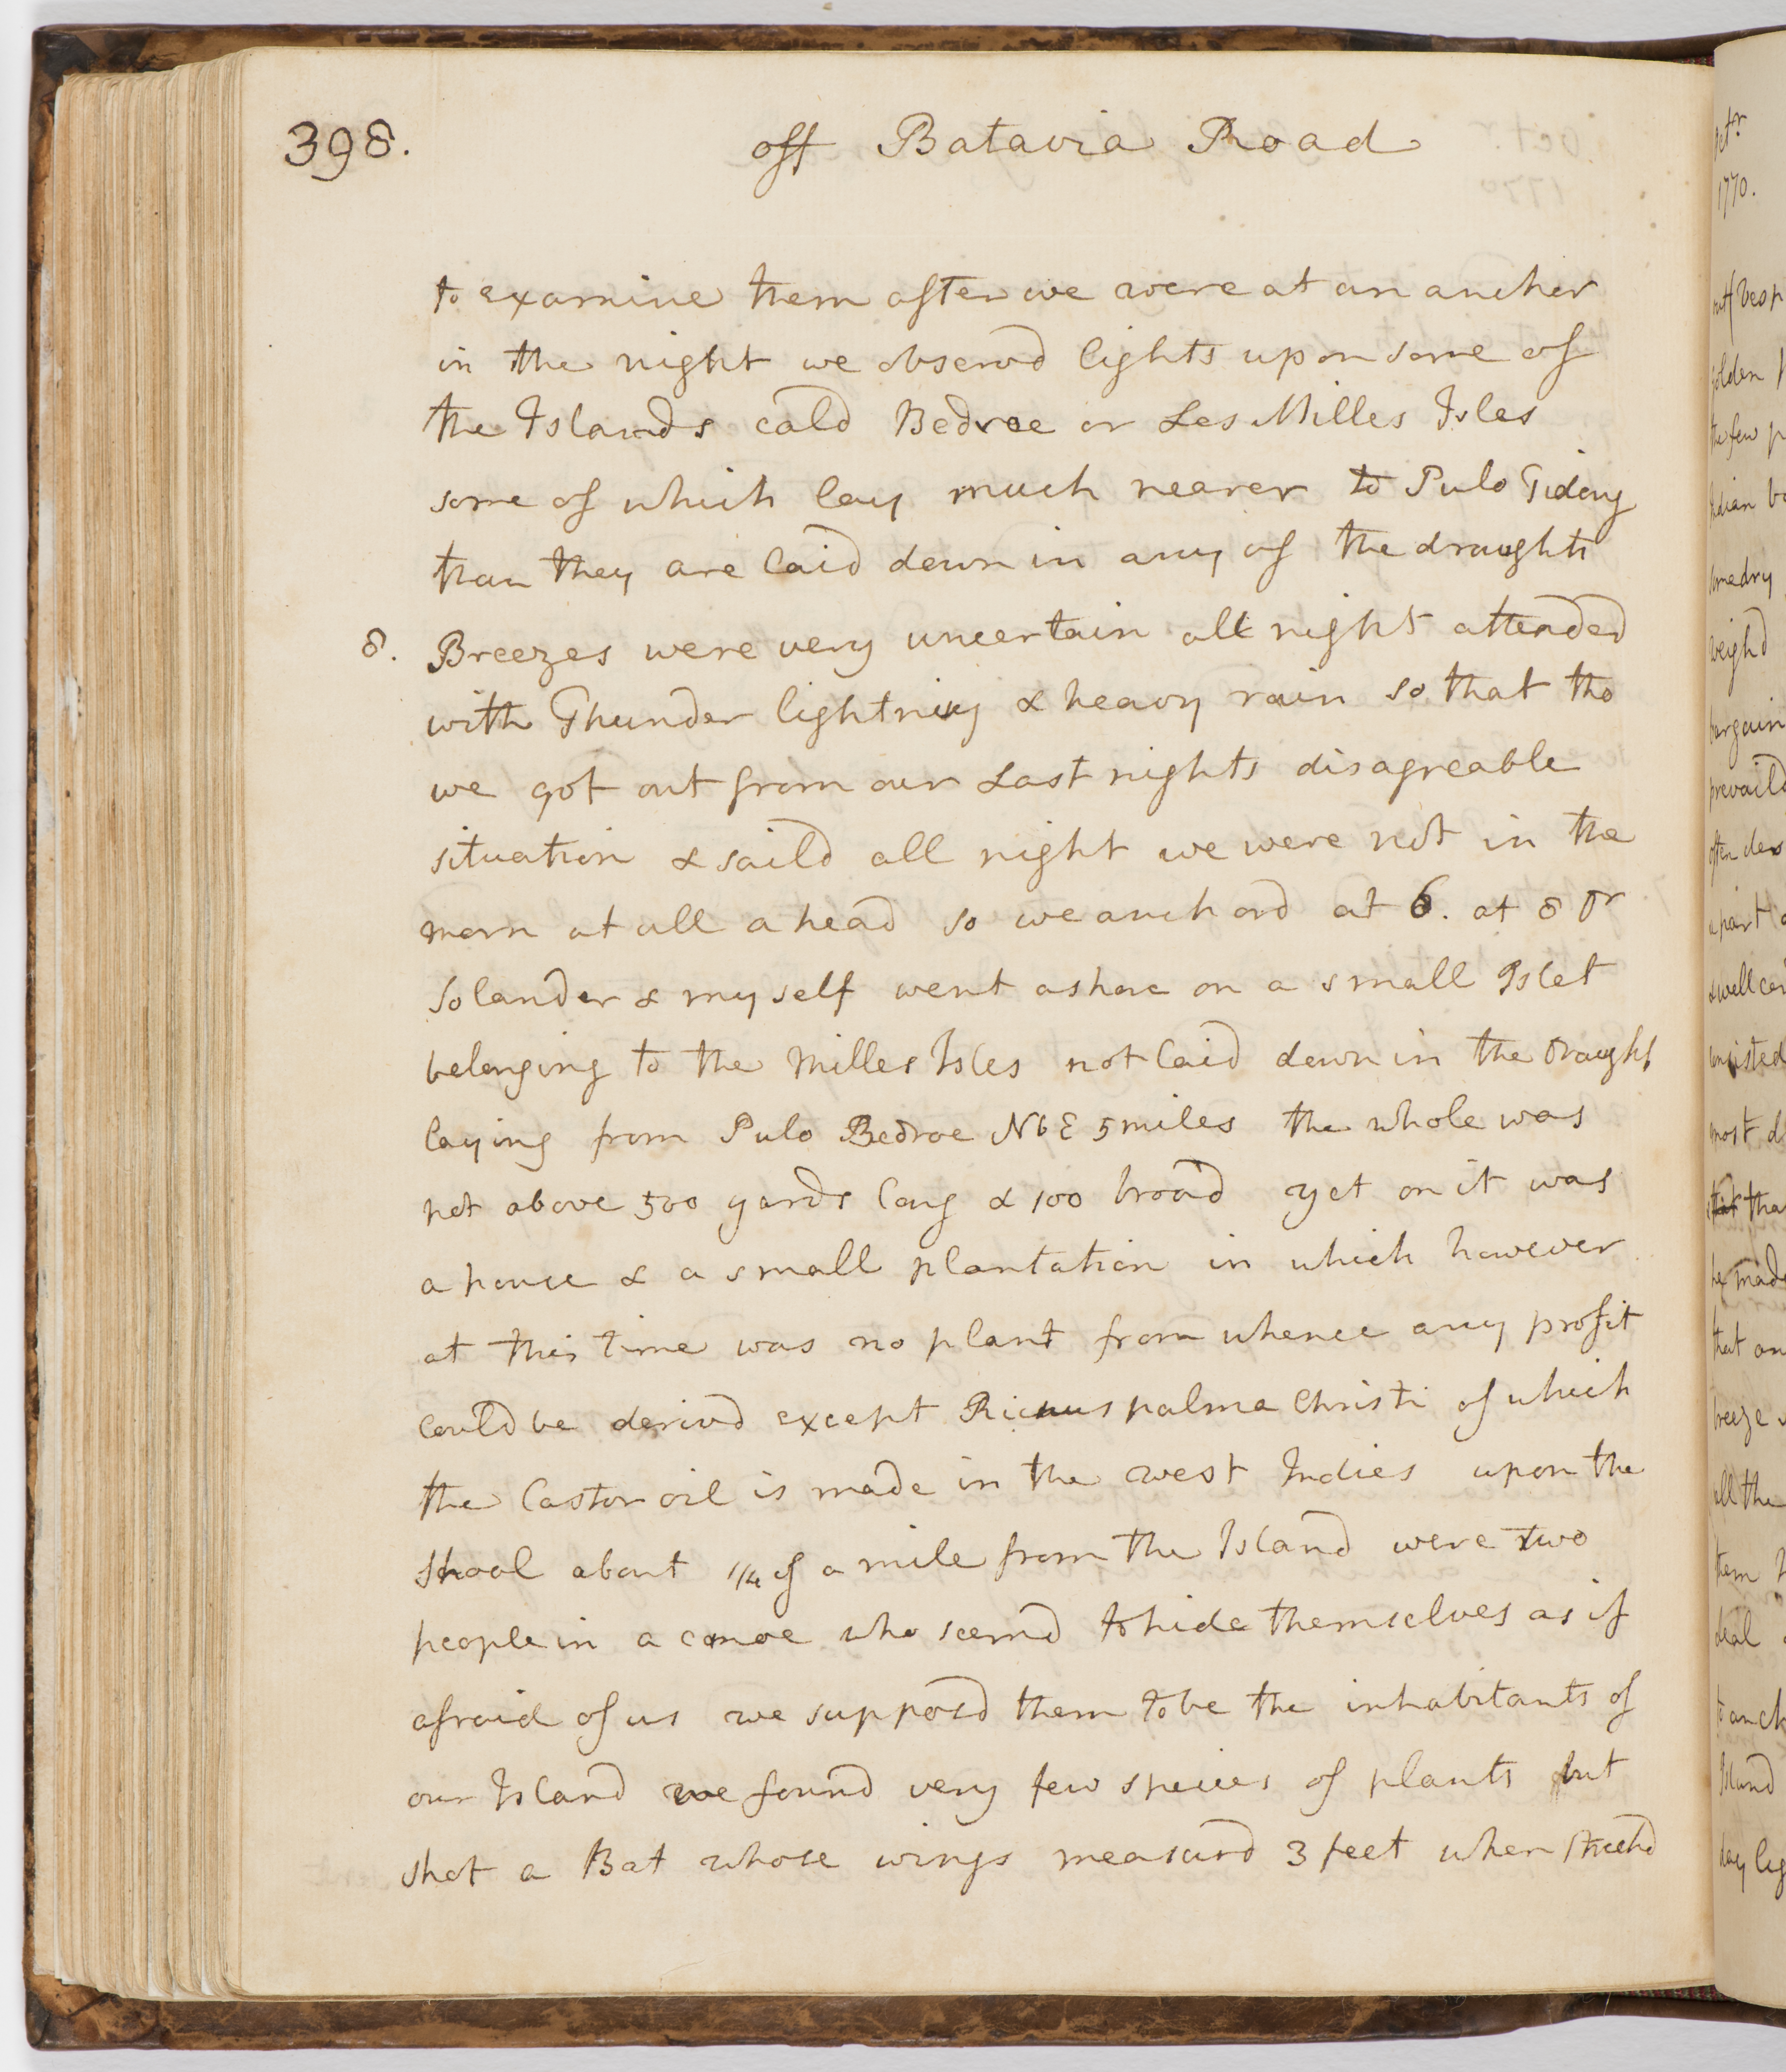 398.
off Batavia Road
to examine them after we were at an ancher
in the night we observd lights upon some of
the Islands cald Bedroe or Les Milles Isles
some of which lay much nearer to Pulo Tidong
than they are laid down in any of the draughts
8. Breezes were very uncertain all night attended
with Thunder lightning & heavy rain so that tho
we got out from our Last nights disagreable
situation & saild all night we were not in the
morn at all ahead so we anchord at 6. at 8 Dr
Solander & myself went ashore on a small Islet
belonging to the Milles Isles not laid down in the Draught
laying from Pulo Bedroe NbE 5 miles the whole was
not above 500 yards long & 100 broad yet on it was
a house & a small plantation in which however
at this time was no plant from whence any profit
could be derivd except Ricinus palma Christi of which
the Castor oil is made in the west Indies upon the
shoal about 1/4 of a mile from the Island were two
people in a canoe who seemd to hide themselves as if
afraid of us we supposd them to be the inhabitants of
our Island we found very few species of plants but
shot a Bat whose wings measurd 3 feet when stretchd
Octr
1770.
golden
the few
weighd
bargain
prevaild
a part
& well
most
that tha
that
breeze
all the
them
deal
Island
day